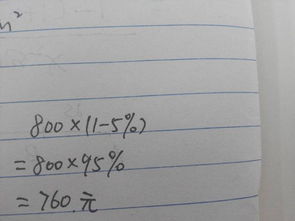 m²
800×(1-5%)
=800×95%
=760.元